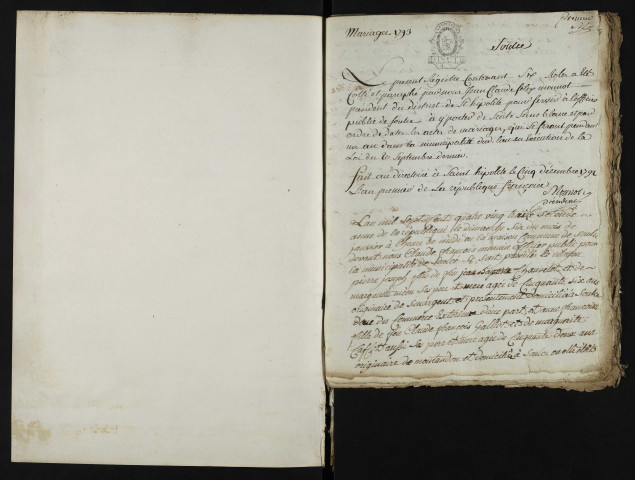 Premier
Mariages 1793
Soulce
Le present Registre Contenant Six Roles a été
Cotté et paraphé par nous Jean Claude
president du district de St hipolite pour servir à l'officier
public de Soulce à y porter de Suite Sans blanc et par
ordre de dates les actes de mariages qui se feront pendant
un an dans la municipalité dud. lieu en execution de la
Loi du 20 Septembre dernier.
fait au directoire à Saint hipolite le Cinq décembre 1792
L'an premier de La république françoise
Monnot
président
L'an mil Septcent quatre vingt treize Second
année de la république le dimanche Six du mois de
janvier à l'heure de midi en la maison Commune de Soulce
devant nous Claude françois officier public pour
la municipalité de Soulce Se Sont presentés le citoyen
pierre joseph fils de feu jean baptiste et de
marguerite Ses pere et mere agé de Cinquante Six ans
originaire de et presentement domicilié à Soulce
d'une part, et anne françoise
fille de feu Claude françois et de marguerite
aussi Ses pere et mere agée de Cinquante Deux ans
originaire de montandon et domiciliée à Soulce